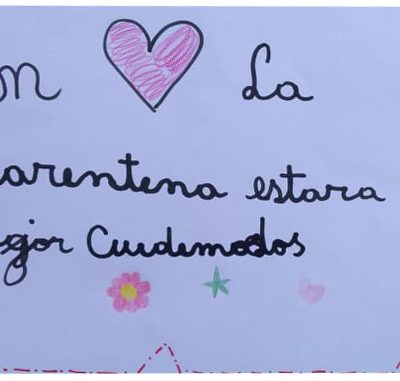 n La
arentena estara
ejor Cuidemodos